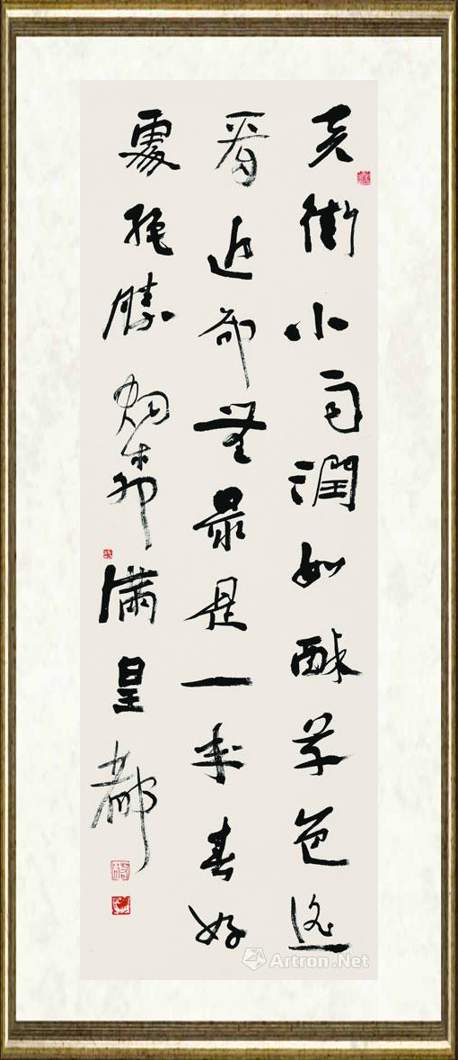 天街小雨潤如酥草色遙
看近却無最是一年春好
處絕勝烟柳滿皇都
Artron.Net